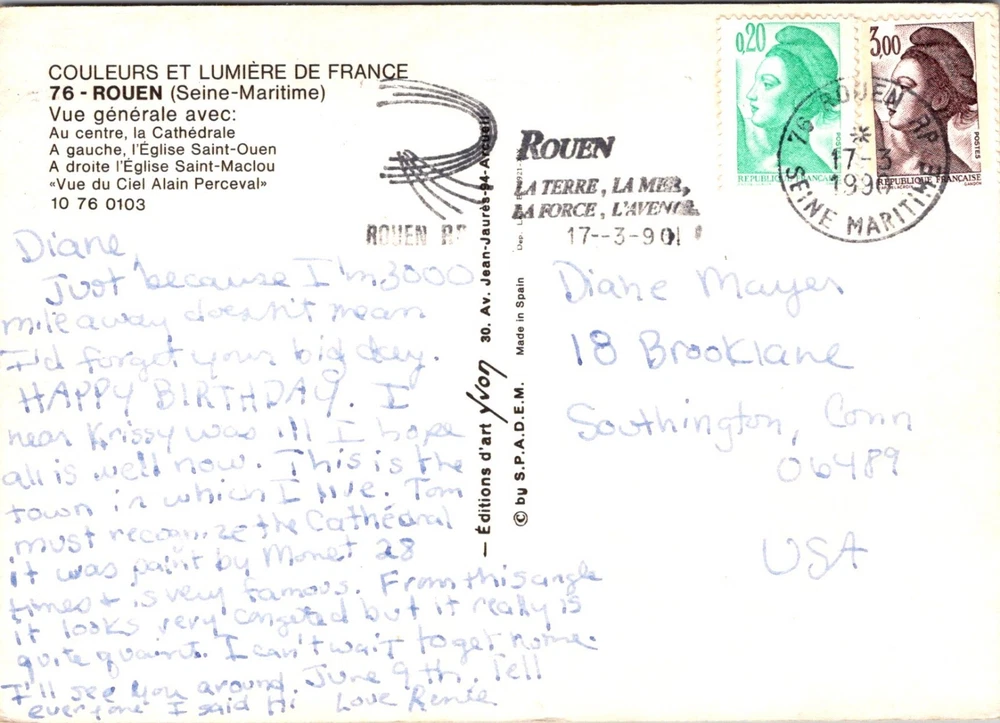 COULEURS ET LUMIÈRE DE FRANCE
76 - ROUEN (Seine-Maritime)
Vue générale avec:
Au centre, la Cathédrale
A gauche, l'Église Saint-Ouen
A droite l'Église Saint-Maclou
«Vue du Ciel Alain Perceval»
10 76 0103
ROUEN RP
ROUEN
LA TERRE, LA MER,
LA FORCE, L'AVENIR
17--3-90
0,20
REPUBLIQUE FRANÇAISE
3,00
POSTES
REPUBLIQUE FRANÇAISE
76 ROUEN RP
17-3
1990
SEINE MARITIME
— Éditions d'art yvon 30. Av. Jean-Jaurès-94-Arcueil
© by S.P.A.D.E.M. Made in Spain Dep.
Diane,
Just because I'm 3000
mile away doesn't mean
I'd forget your big day.
HAPPY BIRTHDAY. I
hear Krissy was ill I hope
all is well now. This is the
town in which I live. Tom
must recognize the Cathédral
it was paint by Monet 28
times + is very famous. From this angle
it looks very congested but it really is
quite quaint. I can't wait to get home.
I'll see you around June 9th. Tell
everyone I said Hi Love Renée
Diane Mayer
18 Brooklane
Southington, Conn
06489
USA